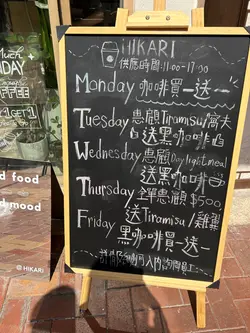 HIKARI
供應時間:11:00-17:00
Monday 咖啡買一送一
Tuesday 惠顧Tiramisu/窩夫
送黑咖啡
Wednesday 惠顧Day light meal
送黑咖啡
Thursday 全單惠顧$500
送Tiramisu/雞翼
Friday 黑咖啡買一送一
DAY
COFFEE
1 GET 1
d food
d mood
HIKARI